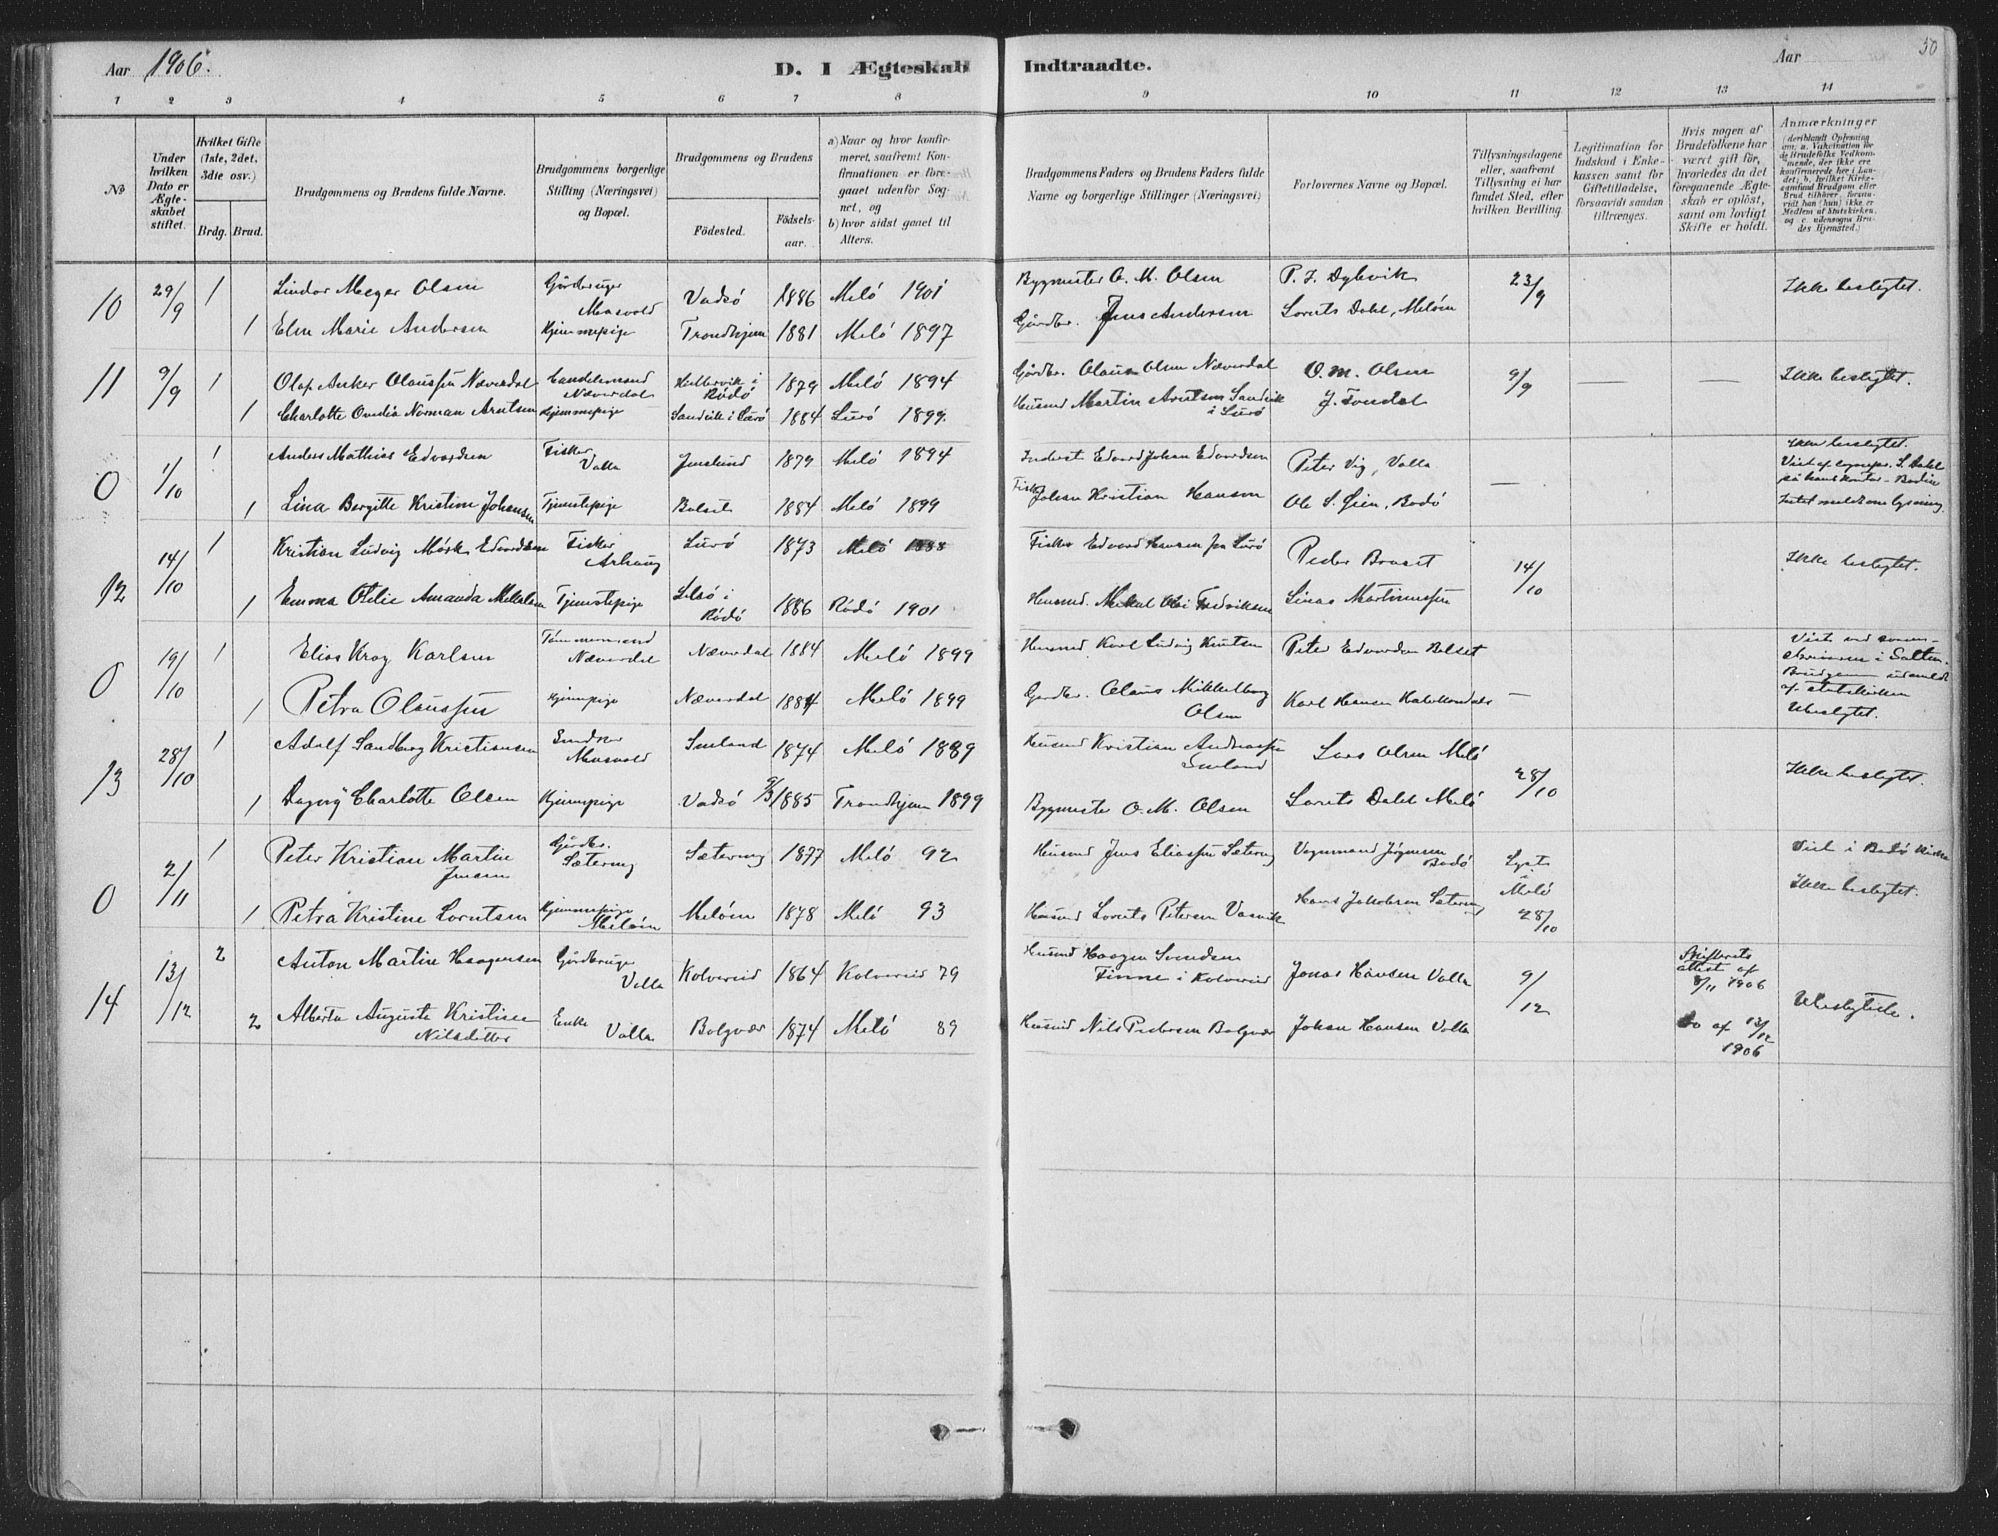 Aar 1906.
D. I Ægteskab Indtraadte.
Aar
50
1 2 3 4 5 6 7 8 9 10 11 12 13 14
No
Under hvilken Dato er Ægteskabet stiftet.
Hvilket Gifte (1ste, 2det, 3die osv.)
Brdg. Brud.
Brudgommens og Brudens fulde Navne.
Brudgommens borgerlige Stilling (Næringsvei) og Bopæl.
Brudgommens og Brudens
Födested.
Födselsaar.
a) Naar og hvor konfirmeret, saafremt Konfirmationen er foregaaet udenfor Sognet, og
b) hvor sidst gaaet til Alters.
Brudgommens Faders og Brudens Faders fulde Navne og borgerlige Stillinger (Næringsvei)
Forlovernes Navne og Bopæl.
Tillysningsdagene eller, saafremt Tillysning ei har fundet Sted, efter hvilken Bevilling.
Legitimation for Indskud i Enkekassen samt for Giftetilladelse, forsaavidt saadan tiltrænges.
Hvis nogen af Brudefolkene har været gift før, hvorledes da det foregaaende Ægteskab er oplöst, samt om lovligt Skifte er holdt.
Anmærkninger
10 29/9 1 Lindor Meyer Olsen Gårdbruger Masvold Vadsö 1886 Melö 1901 Bygmester O. M. Olsen P. J. Dybvik 23/9 Ikke beslegtet.
1 Marie Andersen Hjemmepige Trondhjem 1881 Melö 1897 Gårdbr. Jens Andersen Lorents Dahl, Meløen
11 9/9 1 Olaf Anker Olaussen Næverdal Handelsmand Næverdal i Rödö 1879 Melö 1894 Gårdbr. Olaus Olsen Næverdal O. M. Olsen 9/9 — — Ikke beslegtet.
1 Charlotte Ovedia Norman Arntsen Hjemmepige Sandvik i Lurö 1884 Lurö 1899. Husmd Martin Arntsen Sandvik i Lurö
0 1/10 1 Anders Mathias Edvardsen Fisker Valla 1879 Melö 1894 Inderst Edvard Johan Edvardsen Peter Vig, Valla — Ikke beslegtet.
1 Lina Bergitte Kristine Johansen Tjenestepige Bolset 1884 Melö 1899 Fisk. Johan Kristian Hansen Ole S. Gien, Bodö
12 14/10 1 Kristian Ludvig Mörk Edvardsen Fisker Lurö 1873 Melö 1888 Fisker Edvard Hansen fra Lurö Peder 14/10 Ikke beslegtet.
1 Emma Otelie Amanda Tjenestepige i Rödö 1886 Rödö 1901 Husmd. Martinussen
0 19/10 1 Elias Krog Karlsen Tömmermand Næverdal Næverdal 1884 Melö 1899 Husmd Karl Ludvig Knutsen Peter Edvardsen Bolset
1 Petra Olaussen Hjemmepige Næverdal 1884 Melö 1899 Gårdbr. Olaus Mikkelborg Olsen Karl Hansen — Ubeslegtet.
13 28/10 1 Adolf Sandberg Kristiansen Masvold 1874 Melö 1889 Husmd Kristian Andreassen Lars Olsen Melö 28/10 Ikke beslegtet.
1 Dagny Charlotte Olsen Hjemmepige Vadsö 9/3 1885 Trondhjem 1899 Bygmester O. M. Olsen Lorents Dahl Melö
0 2/11 1 Peter Kristian Martin Jensen Gårdbr. Sætering Sætering 1877 Melö 92 Husmd Jens Eliassen Sætering Vognmand Jörgensen Bodö Lyst i Melö 28/10 Viet i Bodö Kirke
1 Petra Kristine Lorntsen Hjemmepige Meløen Meløen 1878 Melö 93 Husmd Lorents Petersen Hans Jakobsen Sætering Ikke beslegtet.
14 13/12 2 Anton Martin Haagensen Gårdbruger Valla Kolvereid 1864 Kolvereid 79 Husmd Haagen Svendsen Finne i Kolvereid Jonas Hansen Valla 9/12 Skifterets attest af 8/11 1906 Ubeslegtede.
2 Alberta Auguste Kristine Nilsdatter Enke Valla Bolgvær 1874 Melö 89 Husmd Nils Pedersen Bolgvær Johan Hansen Valla Do af 12/12 1906